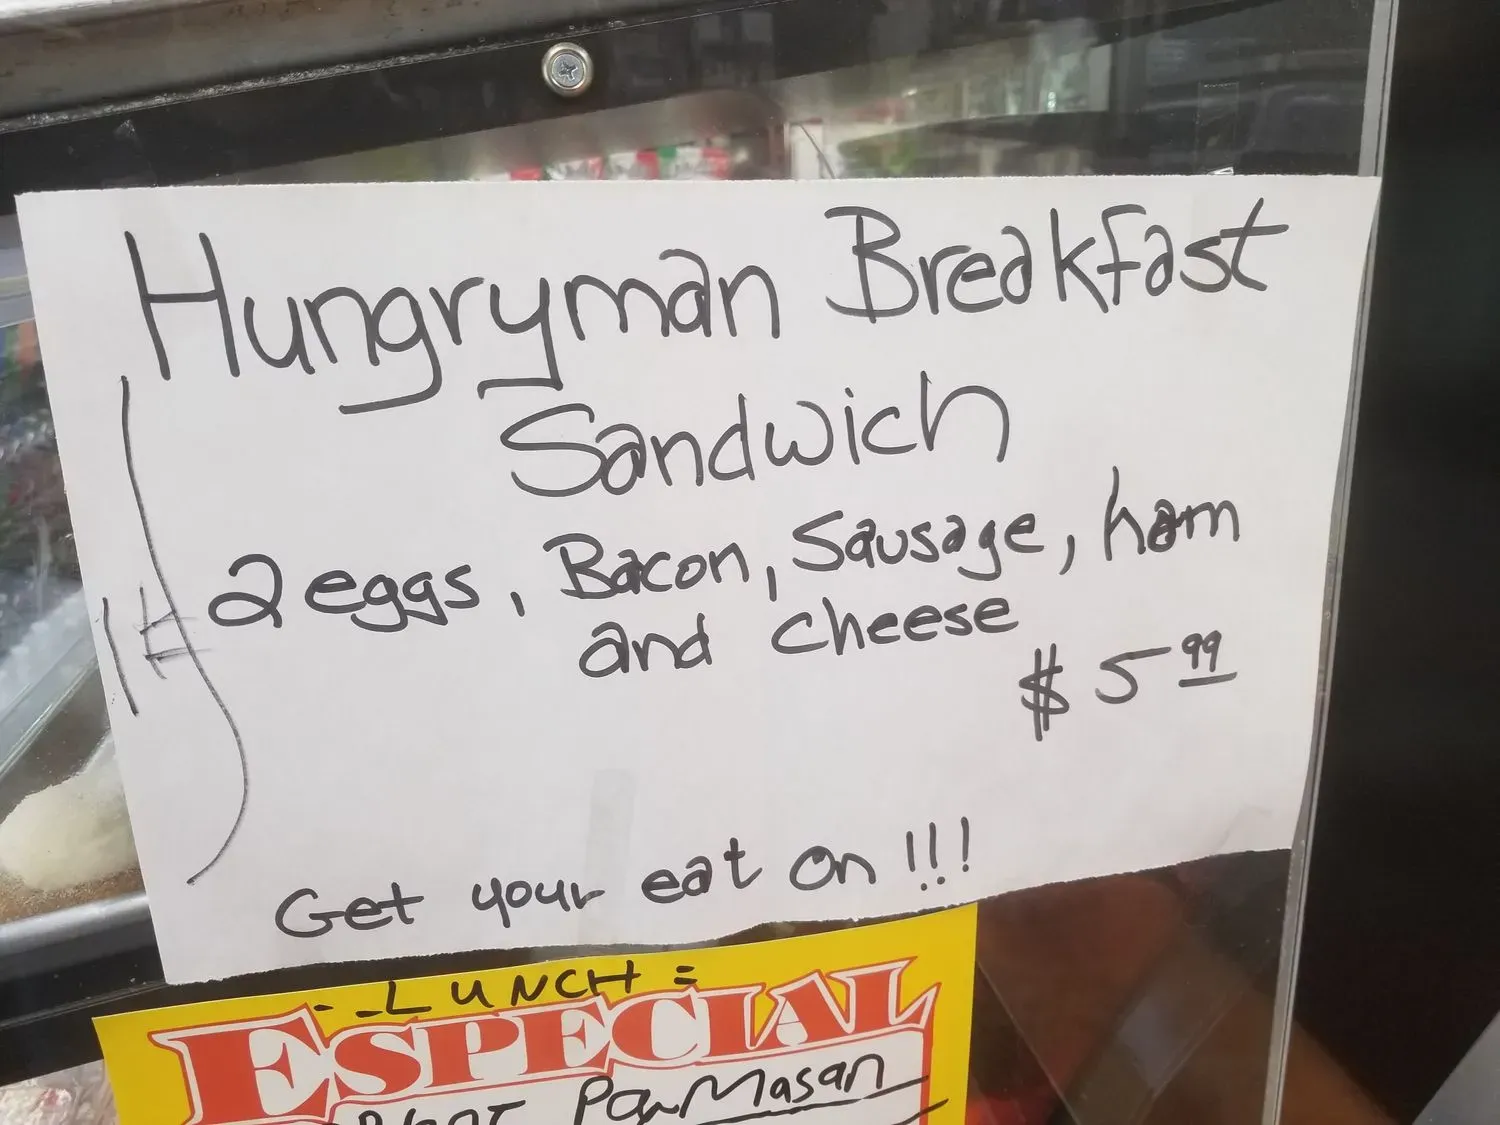 Hungryman Breakfast
Sandwich
2 eggs, Bacon, Sausage, ham
and cheese
$ 5.99
Get your eat on !!!
LUNCH
ESPECIAL
ParMasan